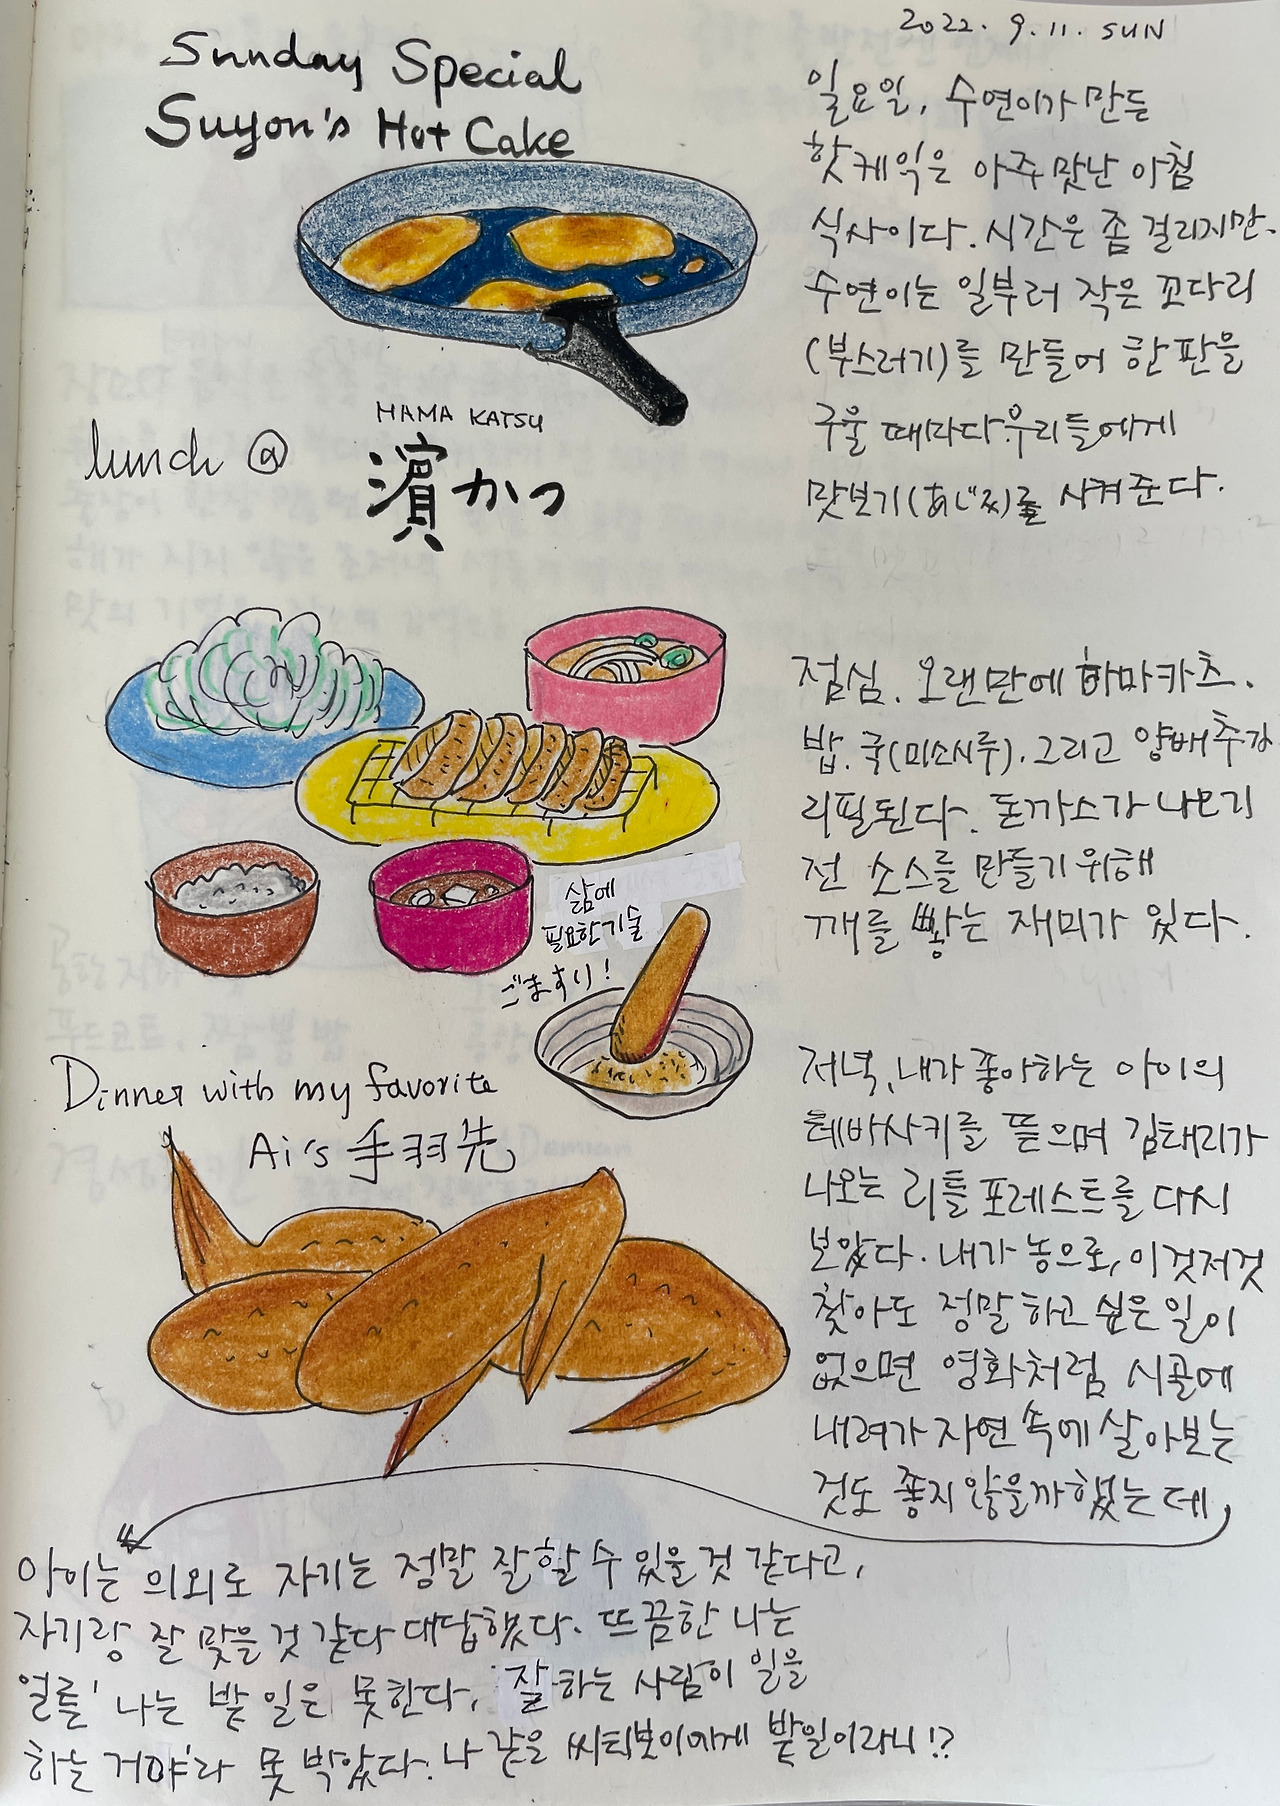 2022. 9. 11. SUN
Sunday Special
Suyon's Hot Cake
일요일, 수연이가 만든
핫케익은 아주 맛난 아침
식사이다. 시간은 좀 걸리지만.
수연이는 일부러 작은 꼬다리
(부스러기)를 만들어 한 판을
구울 때마다 우리들에게
맛보기(あじ見)를 시켜준다.
lunch @
HAMA KATSU
濱かつ
점심. 오랜만에 하마카츠.
밥. 국(미소시루). 그리고 양배추가
리필된다. 돈까스가 나오기
전 소스를 만들기 위해
깨를 빻는 재미가 있다.
삶에
필요한 기술
ごますり!
Dinner with my favorite
Ai's 手羽先
저녁, 내가 좋아하는 아이의
테바사키를 뜯으며 김태리가
나오는 리틀 포레스트를 다시
보았다. 내가 농으로, 이것저것
찾아도 정말 하고 싶은 일이
없으면 영화처럼 시골에
내려가 자연 속에 살아보는
것도 좋지 않을까 했는데
아이는 의외로 자기는 정말 잘할 수 있을 것 같다고,
자기랑 잘 맞을 것 같다 대답했다. 뜨끔한 나는
얼른 '나는 밭 일은 못한다, 잘하는 사람이 일을
하는 거야'라 못 박았다. 나 같은 씨티보이에게 밭일이라니!?